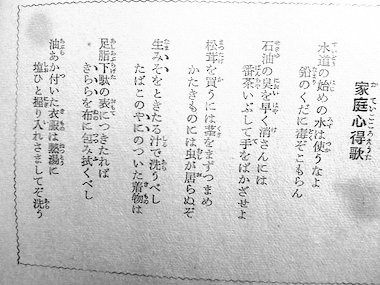 家庭心得歌
水道の始めの水は使うなよ
鉛のくだに毒ぞともらん
石油の臭を早く消さんには
番茶いぶして手をばかざせよ
松茸を買うには茎をまずつまめ
かたきものには虫が居らぬぞ
生みそをときたる汁で洗うべし
たばこのやにのついた着物は
足脂下駄の表につきたれば
きららを布に包み拭くべし
油あか付いた衣服は熱湯に
塩ひと握り入れさましてぞ洗う